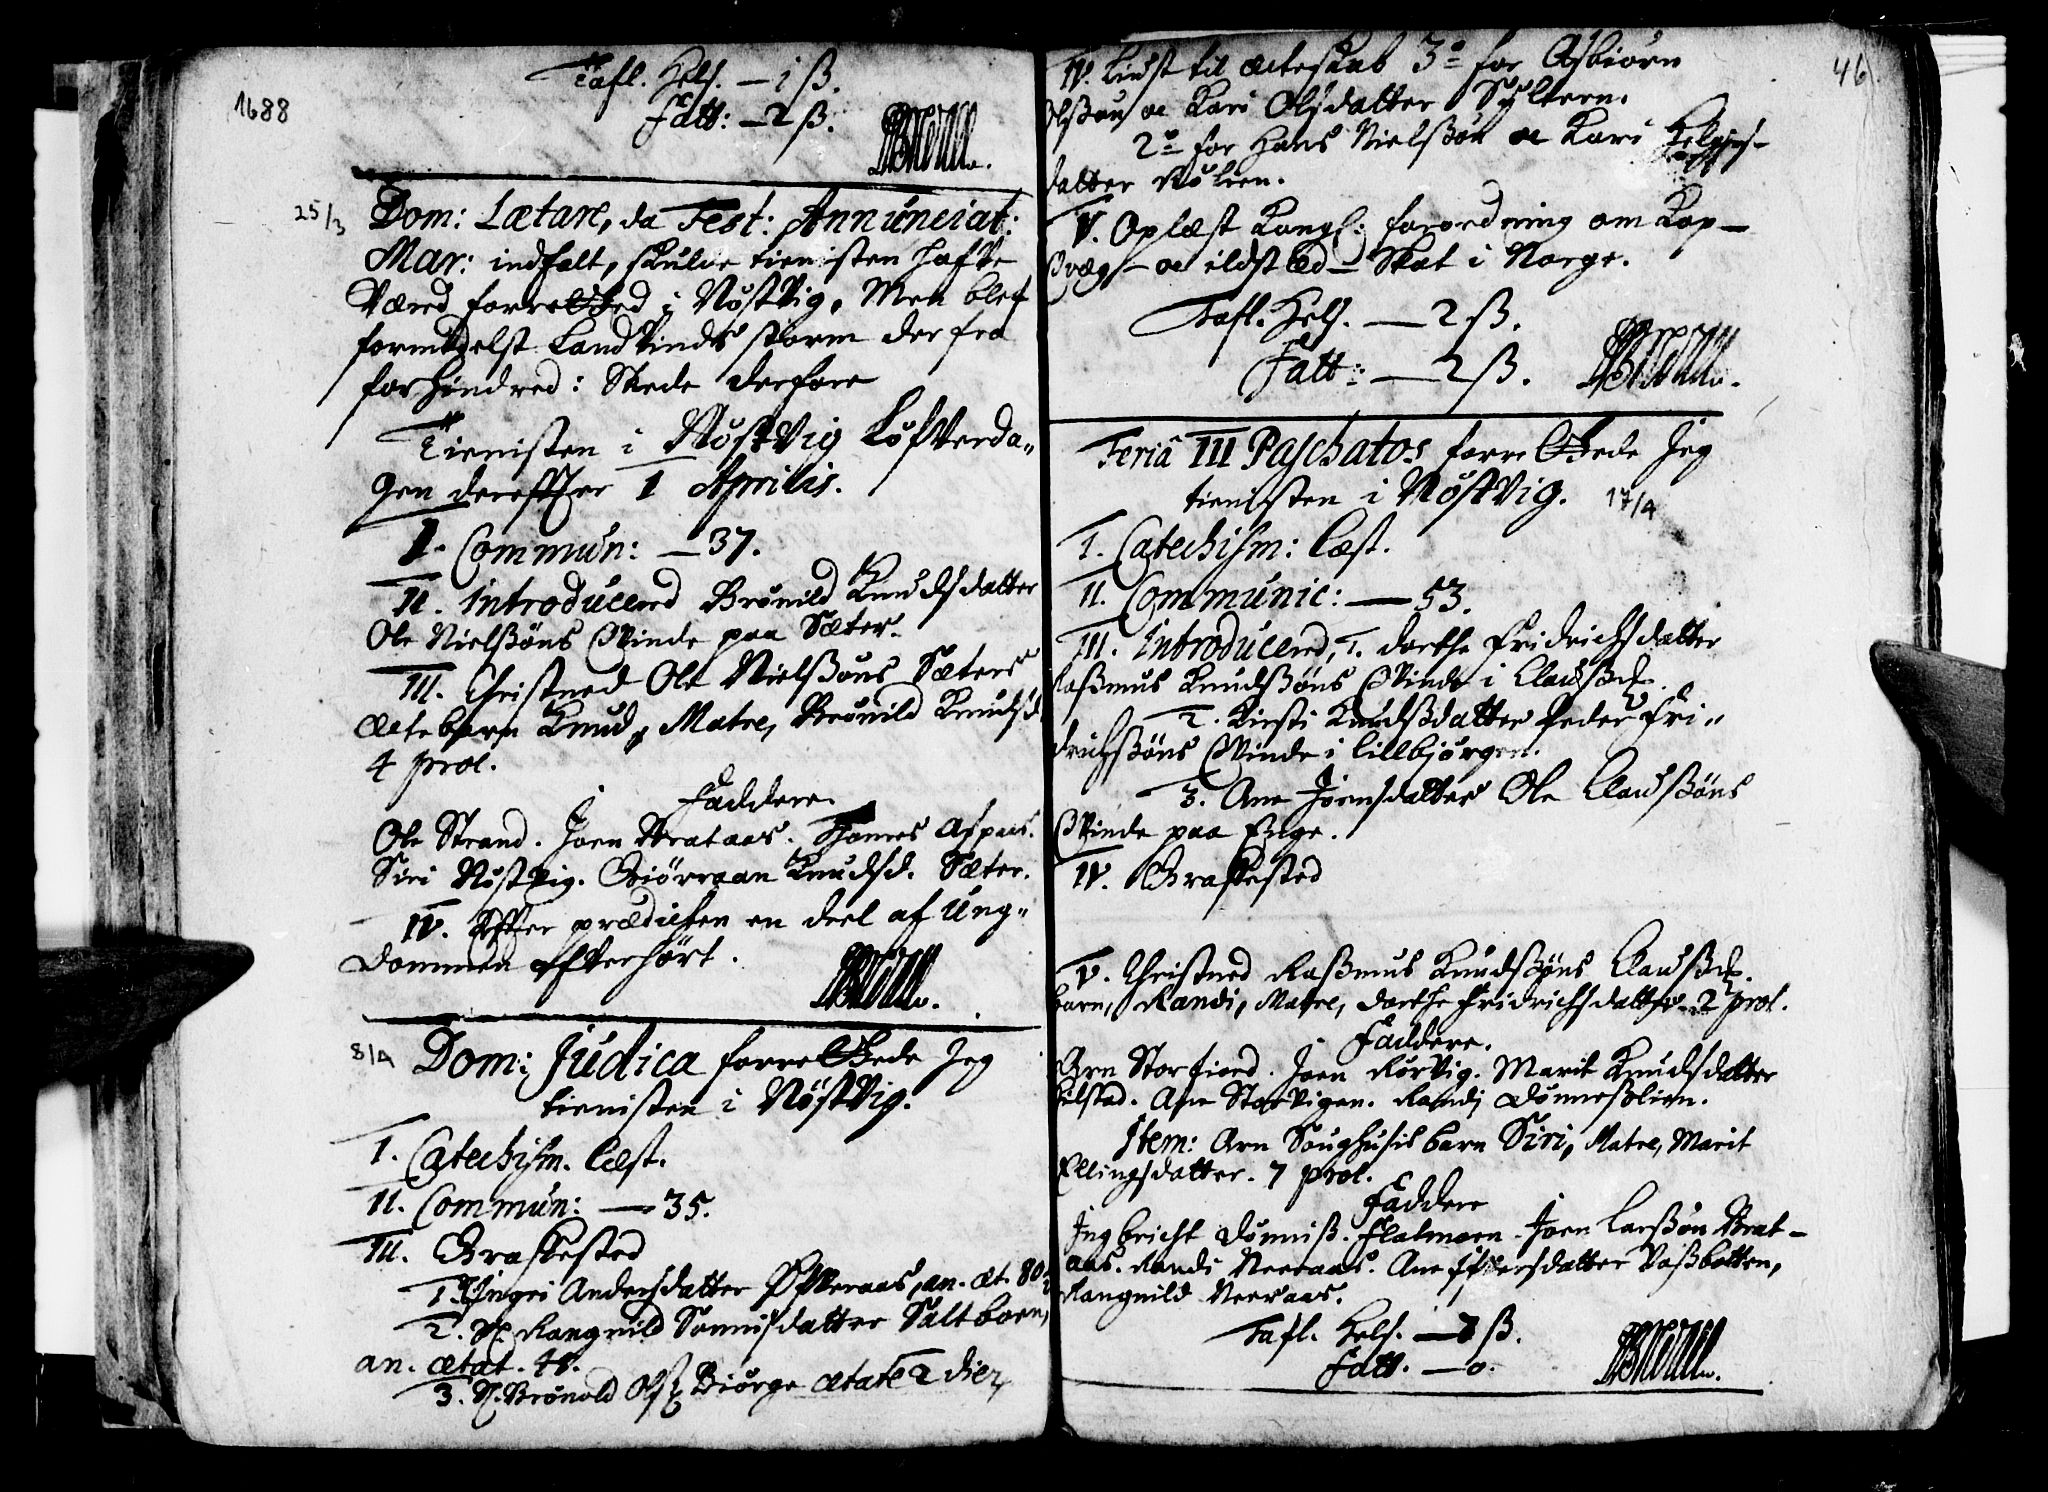 1688
Tafl. Hels. — 1 ß.
Fatt: — 2 ß.
25/3
Dom: Lætare, da Fest: Annunciat:
Mar: indfalt, skulde tienisten hafve
Væred forrettd i Nøstvig, Men blef
formedelst Landvinds storm der fra
forhindred: Skede derfore
Tienisten i Nøstvig Løfverda-
gen derefter 1 Aprilis.
I. Commun: — 37.
II. Introducered Brønild Knudsdatter
Ole Nielsßøns Qvinde paa Sæter.
III. Christned Ole Nielßøns Sæters
ægtebarn Knud, Matre, Brønild Knudsd.
4 prol.
Faddere.
Ole Strand. Joen Brataas. Thomes Aspaas.
Siri Nøstvig. Giørraan Knudsd. Sæter.
IV. Efter prædiken en deel af Ung-
dommen ofverhørt.
8/4
Dom: Judica forrettede Jeg
tienisten i Nøstvig.
I. Catechism. læst.
II. Commun: — 35.
III. Grafkested
1. Ingri Andersdatter Øfveraas, an. æt. 80
2. Rangnild Sonnisdatter Saltboen,
an. ætat. 48.
3. Brønold Biørge ætate 2 dier
46
IV. Liust til ægteskab 3º for Asbiørn
Olßøn oc Kari Olsdatter Sylteren.
2º for Hans Nielßøn oc Kari
datter
V. Oplæst Kongl: forordning om Kop-
Qvæg- oc ildsted- Skat i Norge.
Tafl. Hels. — 2 ß.
Fatt: — 2 ß.
Feriâ III Paschatos forrettede Jeg
tienisten i Nøstvig. 17/4
I. Catechism: læst.
II. Communic: — 53.
III. Introducered, 1. Dorthe Fridrichsdatter
Raßmus Knudßøns Qvinde i
2. Kirsti Knudßdatter Peder Fri-
drichßøns Qvinde i Lillbjørgen.
3. Ane Joensdatter Ole Claußøns
Qvinde paa Enge.
IV. Grafkested
V. Christned Raßmus Knudßøns
barn, Randi, Matre, Dorthe Fridrichsdatter. 2 prol.
Faddere.
Arn Storfiord. Joen Rørvig. Marit Knudsdatter
Ane Storvigen. Randj Dønneßlien.
Item: Arn Soughusis barn Siri, Matre, Marit
Ellingsdatter. 7 prol.
Faddere
Ingbricht Dønniß. Flatmoen. Joen Larßøn Brat-
aas. Randi Neeraas. Ane Iffversdatter Vaßbotten,
Rangnild Neeraas.
Tafl. Hels. — ß.
Fatt. — 0.